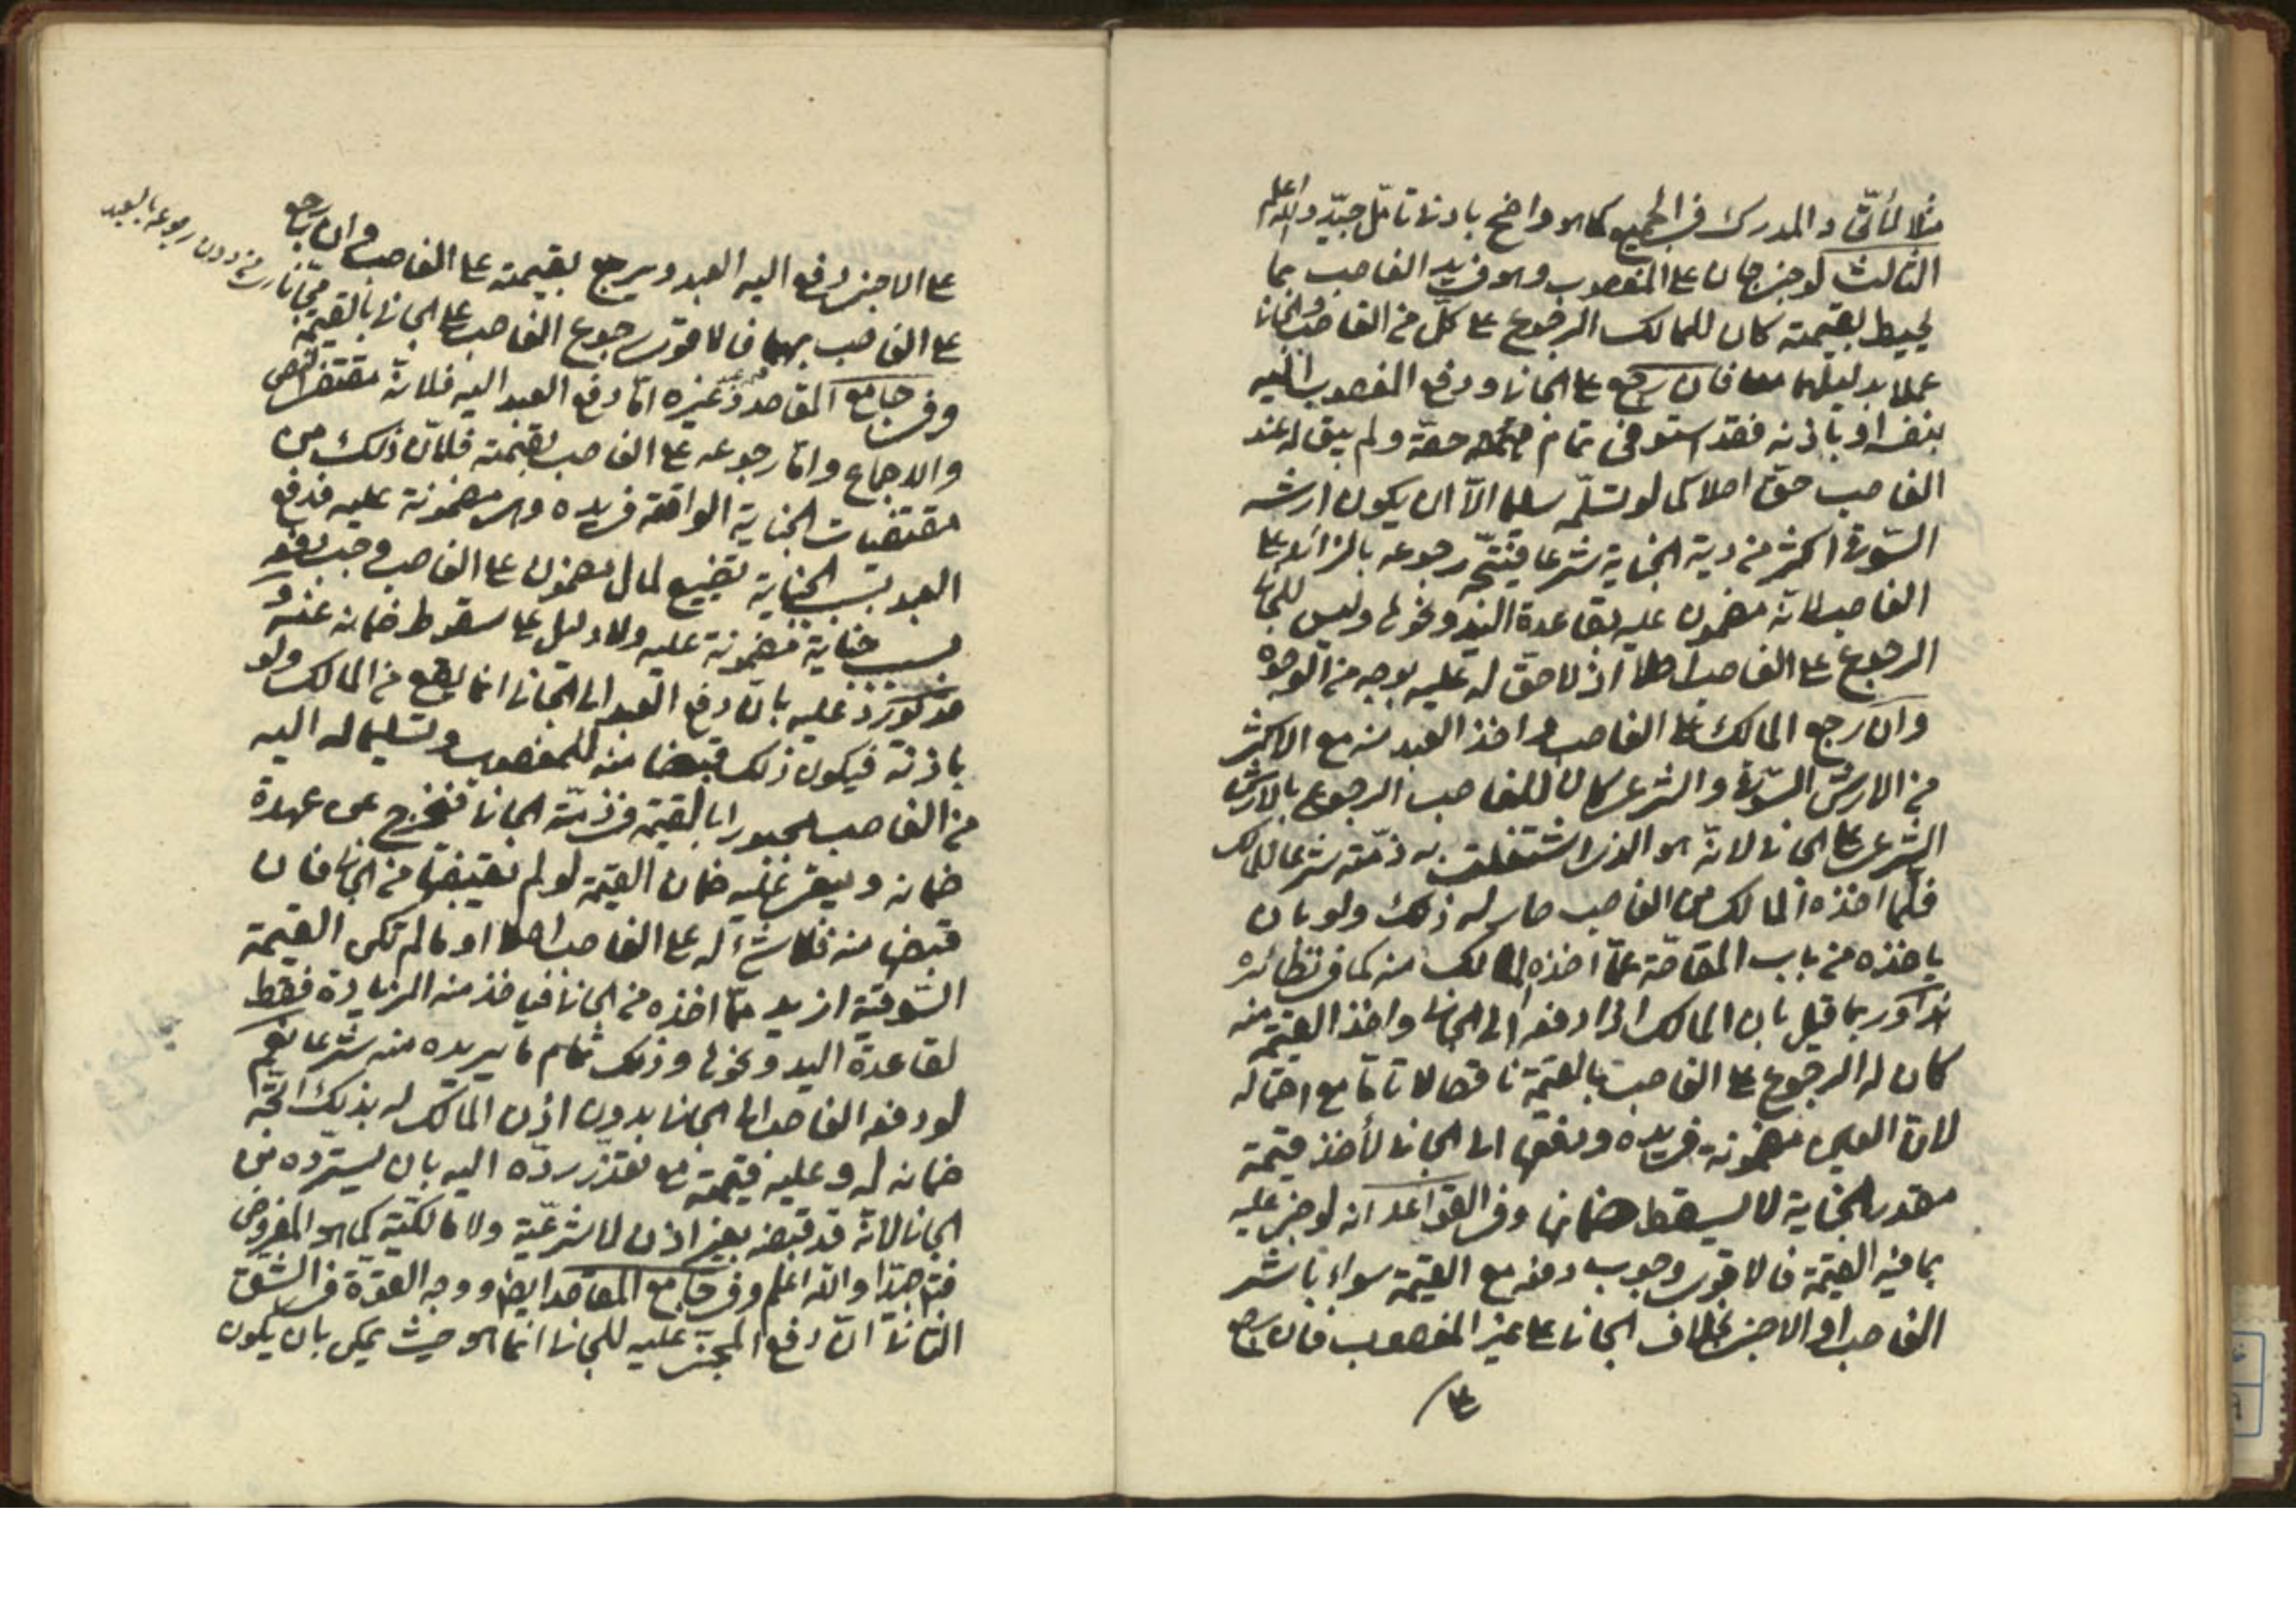 مثلا لمأتى والمدرك في الجميع كما هو واضح بادنى تامّل جيّد والله اعلم
الثالث لو جنى جان على المغصوب وهو في يد الغاصب بما
يحيط بقيمته كان للمالك الرجوع على كلّ من الغاصب والجاني
عملا بدليلهما معا فان رجع على الجاني ودفع المغصوب اليه
بنفسه او باذنه فقد استوفى تمام حقّه ولم يبق له عند
الغاصب حقّ اصلا كما لو تسلّمه سليما الّا ان يكون ارشه
السّوقي اكثر من دية الجناية شرعا فيتّجه رجوعه بالزائد على
الغاصب لانّه مضمون عليه بقاعدة اليد ونحوها وليس للجاني
الرجوع على الغاصب اصلا اذ لا حقّ له عليه بوجه من الوجوه
وان رجع المالك على الغاصب واخذ العبد منه مع الاكثر
من الارش السّوقي والشرعي كان للغاصب الرجوع بالارش
الشرعي على الجاني لانّه هو الذي اشتغلت به ذمّته شرعا للمالك
فلمّا اخذه المالك من الغاصب صار له ذلك ولو بان
ياخذه من باب المقاصّة عمّا اخذه المالك منه كما في نظائره
هذا وربما قيل بان المالك اذا دفعه الى الجاني واخذ القيمة منه
كان له الرجوع على الغاصب بالقيمة ناقصا لا تامّا مع احتماله
لانّ العين مضمونة في يده ودفعها الى الجاني لأخذ قيمة
مقدر الجناية لا يسقط ضمانها وفي القواعد انه لو جنى عليه
بما فيه القيمة فالاقوى وجوب دفعه مع القيمة سواء باشر
الغاصب او الاجنبي بخلاف الجاني على غير المغصوب فان رجع
على
على الاجنبي دفع اليه العبد ويرجع بقيمته على الغاصب وان رجع
على الغاصب بهما فالاقوى رجوع الغاصب على الجاني بالقيمة
مجّانا دون رجوعه بالعبد
وفي جامع المقاصد وغيره امّا دفع العبد اليه فلانّه مقتضى النص
والاجماع وامّا رجوعه على الغاصب بقيمته فلانّ ذلك من
مقتضيات الجناية الواقعة في يده وهي مضمونة عليه فدفع
العبد بسبب الجناية تضييع لمال مضمون على الغاصب وجب دفعه
بسبب جناية مضمونة عليه ولا دليل على سقوط ضمانه عنه و
عليه بانّ دفع العبد الى الجاني انما يقع من المالك ولو
باذنه فيكون ذلك قبضا منه للمغصوب وتسليما له اليه
من الغاصب مجبورا بالقيمة في ذمّة الجاني فيخرج عن عهدة
ضمانه ويبقى عليه ضمان القيمة لو لم يقبضها من الجاني فان
قبضها منه فلا شيء له على الغاصب اصلا او ما لم تكن القيمة
السّوقية ازيد ممّا اخذه من الجاني فياخذ منه الزيادة فقط
لقاعدة اليد ونحوها وذلك تمام ما يريده منه شرعا نعم
لو دفعه الغاصب الى الجاني بدون اذن المالك له بذلك اتّجه
ضمانه له وعليه قيمته مع تعذّر ردّه اليه بان يستردّه من
الجاني لانّه قد قبضه بغير اذن لا شرعيّة ولا مالكيّة كما هو المفروض
فتم جيّدا والله اعلم وفي جامع المقاصد ايضا ووجه القوّة في الشقّ
الثاني انّ دفع المجني عليه للجاني انّما هو حيث يمكن بان يكون